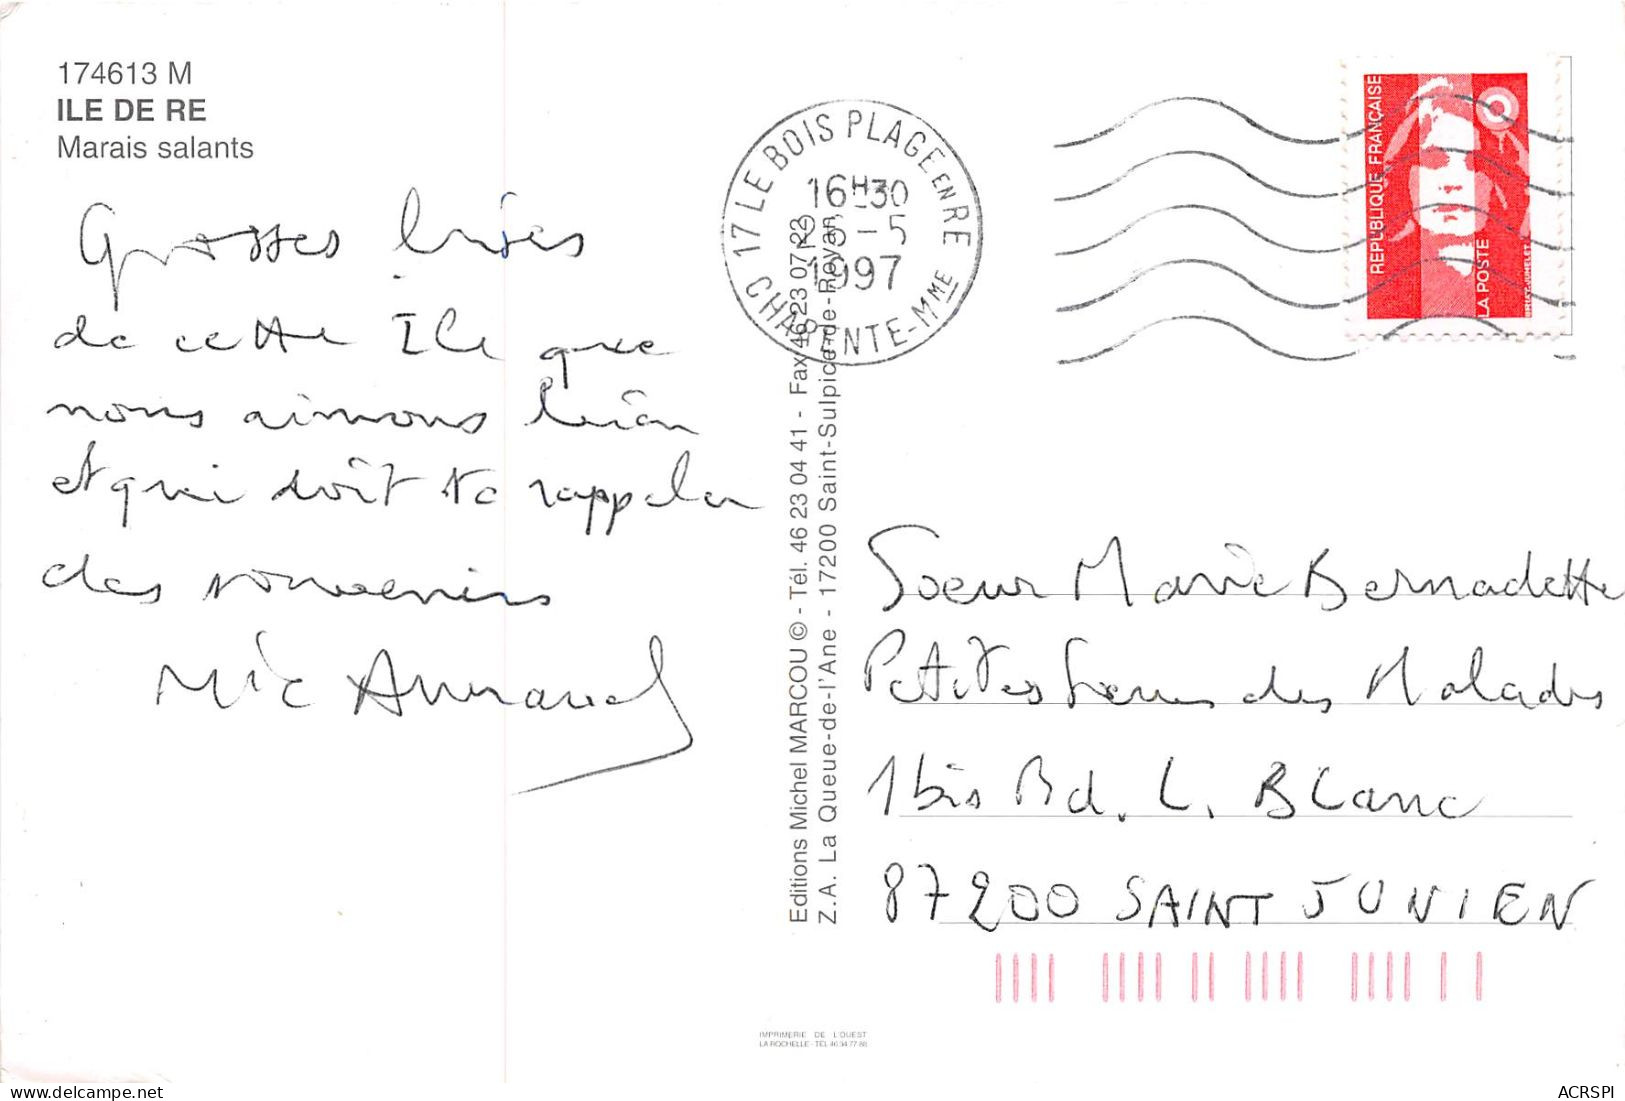 174613 M
ILE DE RE
Marais salants
Grosses bises
de cette Ile que
nous aimons bien
et qui doit te rappeler
des souvenirs
Mic Armand
Editions Michel MARCOU © - Tél. 46 23 04 41 - Fax 46 23 07 23
Z.A. La Queue-de-l'Ane - 17200 Saint-Sulpice-de-Royan
17 LE BOIS PLAGE EN RE
16H30
-5
1997
CHARENTE-MME
REPUBLIQUE FRANÇAISE
LA POSTE
Soeur Marie Bernadette
Petites Soeurs des Malades
1 bis Bd. L. Blanc
87200 SAINT JUNIEN
IMPRIMERIE DE L'OUEST
LA ROCHELLE - TÉL 46 34 77 88
delcampe.net
ACRSPI